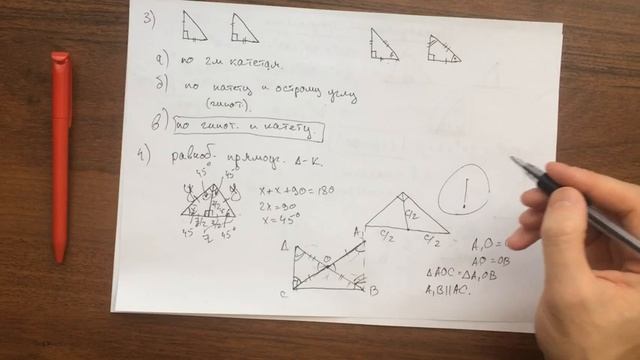 3)
а) по 2м катетам.
б) по катету и острому углу
(гипот.).
в) по гипот. и катету.
4) равноб. прямоуг. Δ-к.
45° 45°
x + x + 90 = 180
2x = 90
x = 45°
45° 45°
c/2
c/2 c/2
A A₁
O
C B
A₁O =
AO = OB
ΔAOC = ΔA₁OB
A₁B || AC.